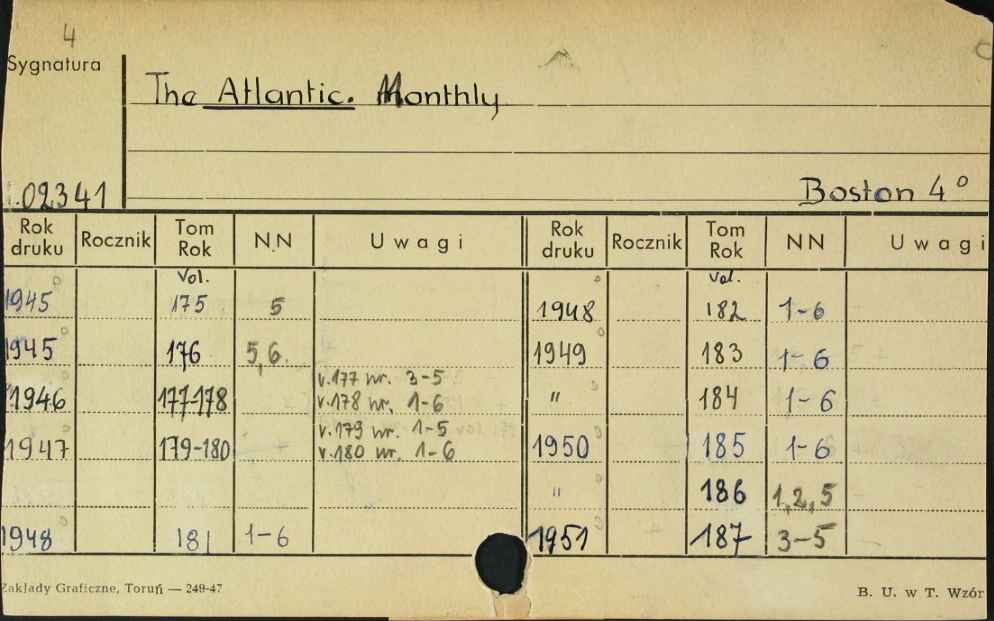 4
Sygnatura
The Atlantic. Monthly
02341
Boston 4°
Rok druku Rocznik Tom Rok N.N Uwagi Rok druku Rocznik Tom Rok NN Uwagi
Vol. Vol.
1945 175 5 1948 182 1-6
1945 176 5,6. 1949 183 1-6
1946 177-178 v.177 nr. 3-5 " 184 1-6
v.178 nr. 1-6
1947 179-180 v.179 nr. 1-5 1950 185 1-6
v.180 nr. 1-6
" 186 1,2,5
1948 181 1-6 1951 187 3-5
Zakłady Graficzne, Toruń — 249-47
B. U. w T. Wzór